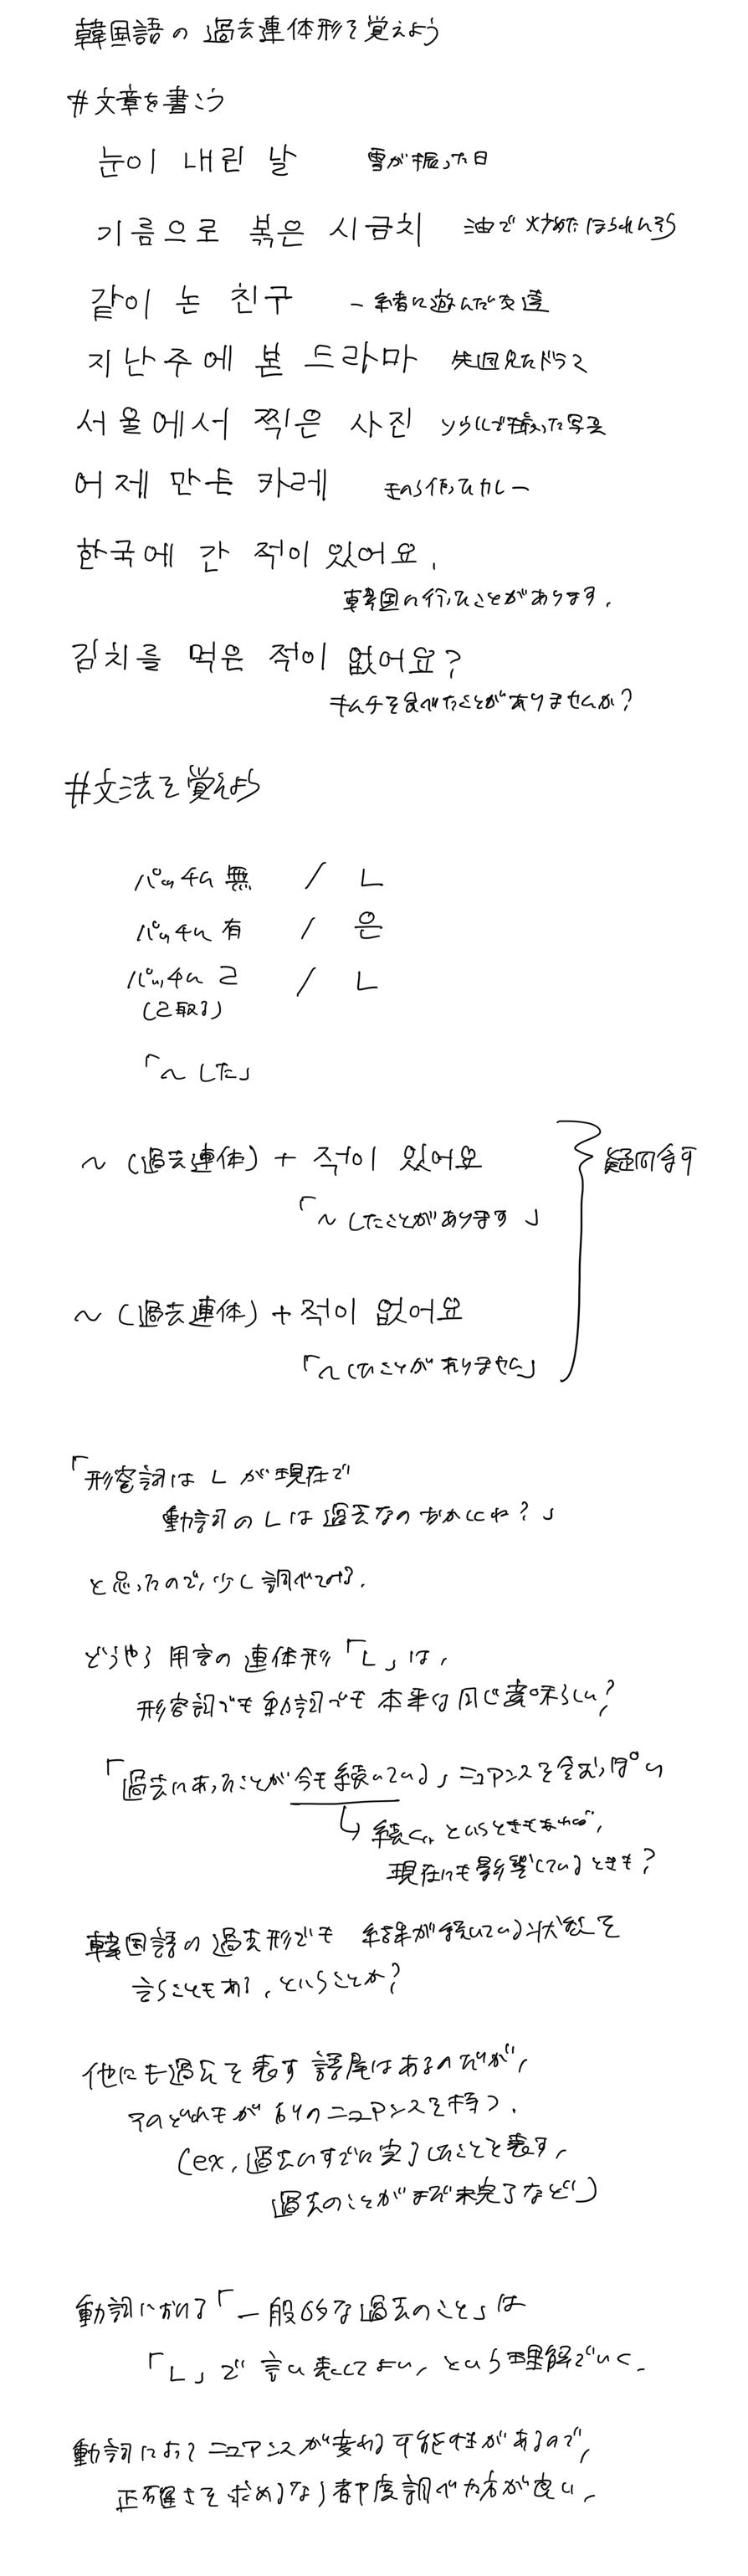 韓国語の過去連体形を覚えよう
#文章を書こう
눈이 내린 날 雪が振った日
기름으로 볶은 시금치 油で炒めたほうれんそう
같이 논 친구 一緒に遊んだ友達
지난주에 본 드라마 先週見たドラマ
서울에서 찍은 사진 ソウルで撮った写真
어제 만든 카레 きのう作ったカレー
한국에 간 적이 있어요.
韓国に行ったことがあります.
김치를 먹은 적이 없어요?
キムチを食べたことがありませんか?
#文法を覚えよう
パッチム無 / ㄴ
パッチム有 / 은
パッチムㄹ / ㄴ
(ㄹ取る)
「~した」
~(過去連体)+ 적이 있어요
「~したことがあります」
疑問系可
~(過去連体)+적이 없어요
「~したことがありません」
「形容詞はㄴが現在で
動詞のㄴは過去なのおかしくね?」
と思ったので,少し調べてみる.
どうやら用言の連体形「ㄴ」は,
形容詞でも動詞でも本来は同じ意味らしい?
「過去にあったことが今も続いている」ニュアンスを含むっぽい
続くというときもあれば,
現在にも影響しているときも?
韓国語の過去形でも結果が続いている状態を
言うこともある,ということか?
他にも過去を表す語尾はあるのだが,
そのどれもが別のニュアンスを持つ.
(ex,過去にすでに完了したことを表す,
過去のことがまだ未完了など)
動詞における「一般的な過去のこと」は
「ㄴ」で言い表してよい,という理解でいく.
動詞によってニュアンスが変わる可能性があるので,
正確さを求めるなら都度調べた方が良い.